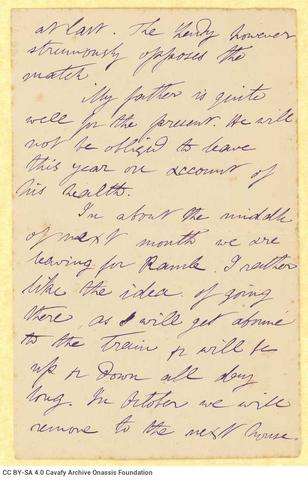 at last. The Lady however
strenuously opposes the
match
My father is quite
well for the present. He will
not be obliged to leave
this year on account of
his health.
In about the middle
of next month we are
leaving for Ramle. I rather
like the idea of going
there as I will get abonné
to the train & will be
up & down all day
long. In October we will
remove to the next house.
CC BY-SA 4.0 Cavafy Archive Onassis Foundation